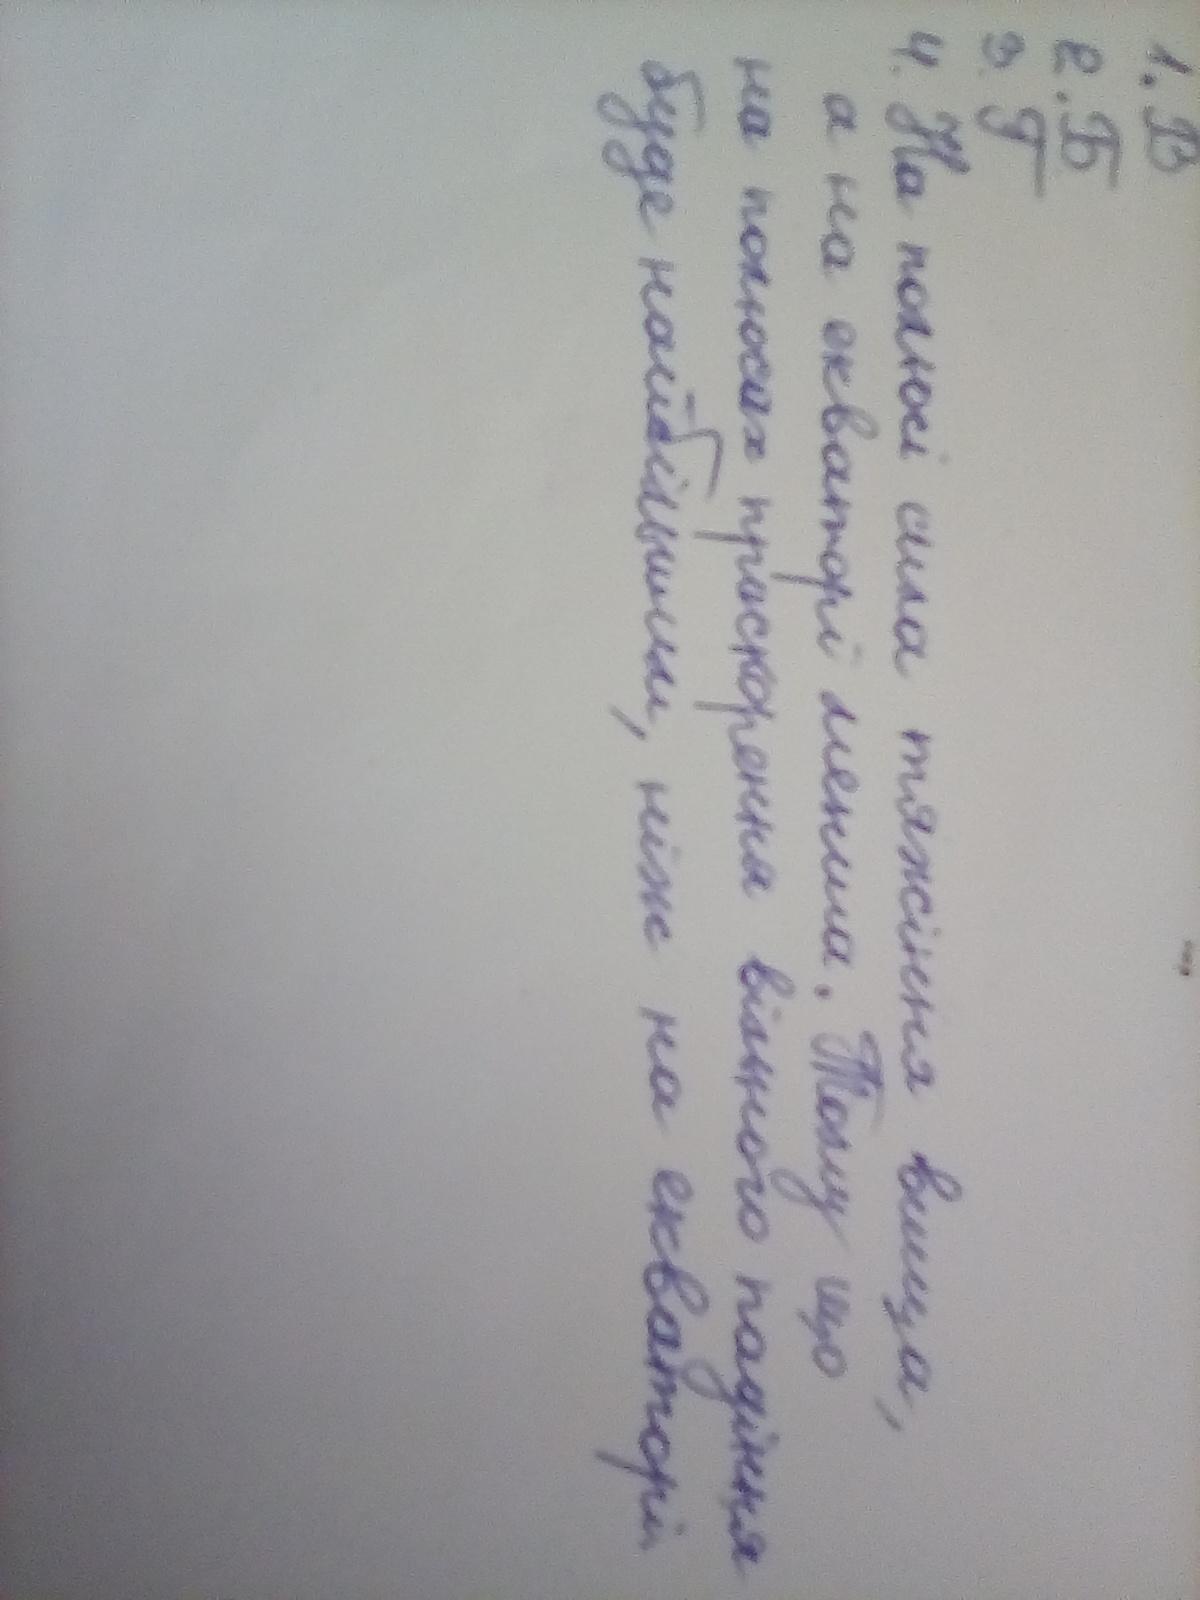 1. В
2. Б
3. Г
4. На полюсі сила тяжіння вища,
а на екваторі менша. Тому що
на полюсах прискорення вільного падіння
буде найбільшим, ніж на екваторі.